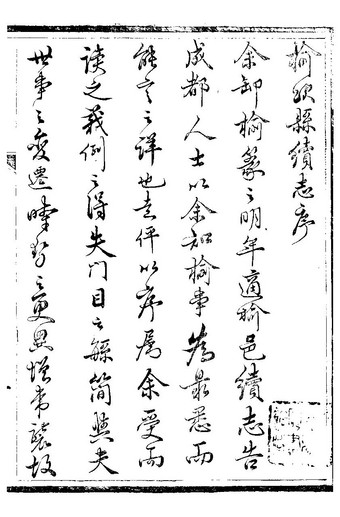 榆次縣續志序
余卸榆篆之明年適榆邑續志告
成都人士以余知榆事為最悉而
能言之詳也走伻以序屬余受而
讀之義例之得失門目之繇簡與夫
世事之變遷時勢之更異燦若諸